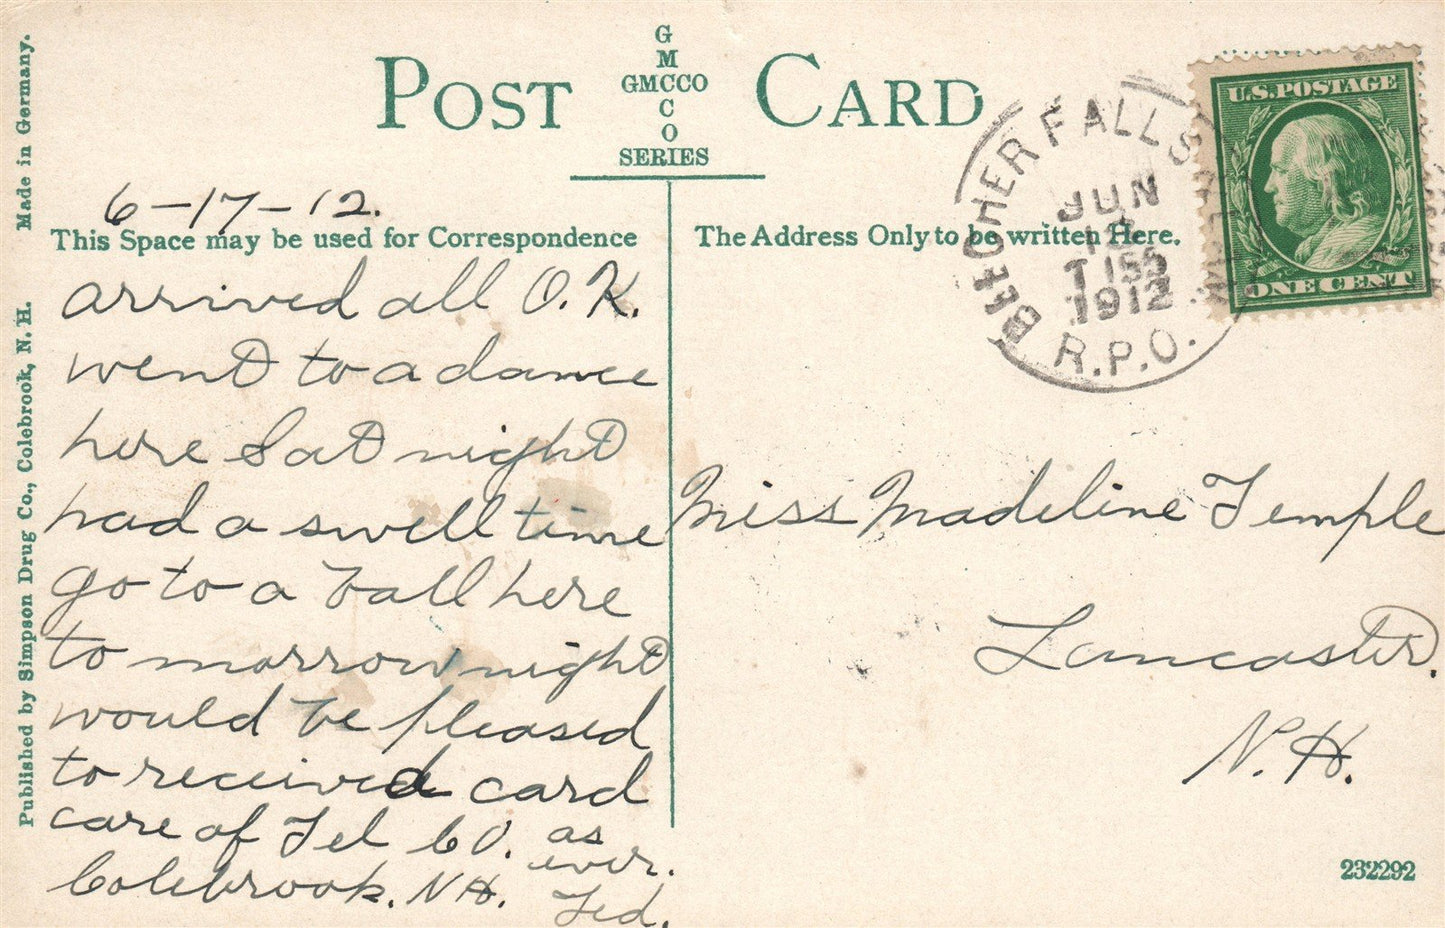 POST CARD
G
M
GMCCO
C
O
SERIES
6-17-12.
This Space may be used for Correspondence
The Address Only to be written Here.
arrived all O.K.
went to a dance
here Sat night
had a swell time
go to a ball here
to morrow night
would be pleased
to received card
care of Tel Co. as
ever.
Colebrook. N.H. Ted.
Miss Madeline Temple
Lancaster.
N.H.
BEECHER FALLS
JUN
T 155
1912
R.P.O.
U.S. POSTAGE
ONE CENT
Published by Simpson Drug Co., Colebrook, N. H. Made in Germany.
232292